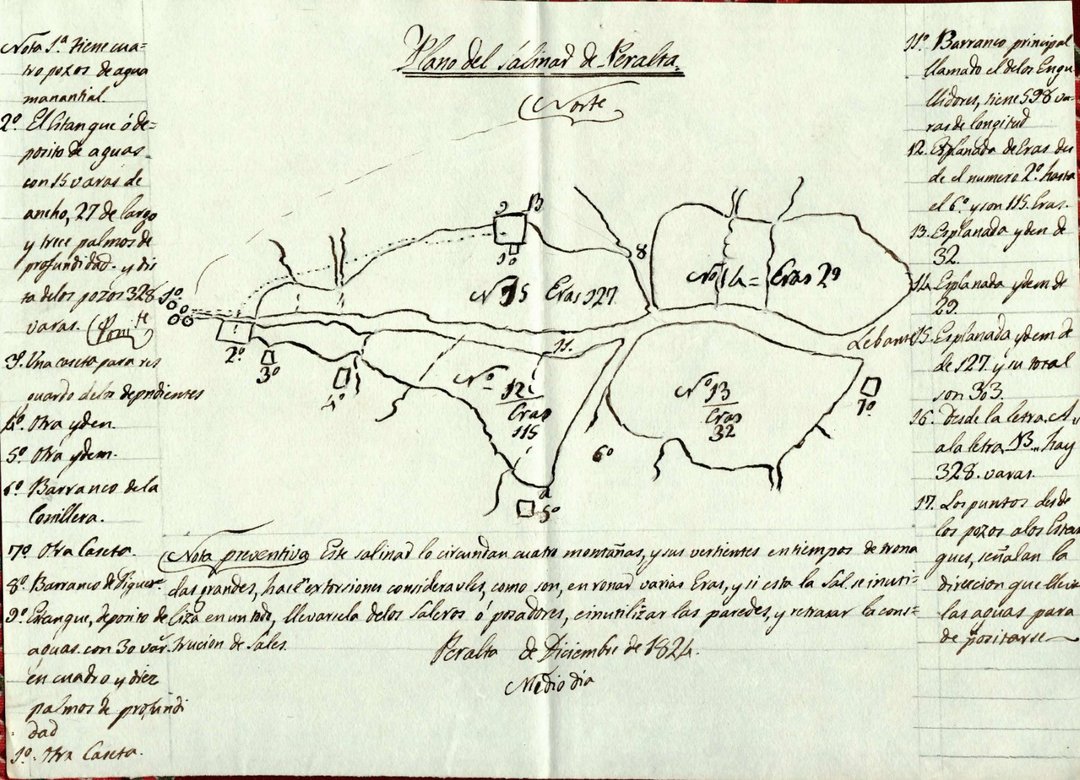 Plano del Salinar de Peralta.
Norte
Nota 1ª tiene cua-
tro pozos de agua
manantial.
2º El Estanque ó de-
posito de aguas
con 15 varas de
ancho, 27 de largo
y trece palmos de
profundidad y dis
ta delos pozos 328
varas.
3º Una caseta para res
guardo de los dependientes
4º Otra yden.
5º Otra ydem.
6º Barranco de la
Conillera.
7º Otra Caseta.
8º Barranco de
9º Estanque, deposito de
aguas con 30 var.
en cuadro y diez
palmos de profundi
dad
Otra Caseta.
11º Barranco principal
llamado el de los Engu
llidores, tiene 598 va-
ras de longitud
12. Esplanada de Eras des
de el numero 2º hasta
el 6º y son 115 Eras.
13. Esplanada yden de
32.
14. Esplanada ydem de
29.
15. Esplanada ydem d
de 127 y su total
son 303.
16. Desde la letra A,
a la letra B hay
328 varas.
17. Los puntos desde
los pozos a los Estan
ques, señalan la
direccion que lleva
las aguas para
depositarse
9 B
10
8
1º
2º
3º
4º
Nº 15 Eras 127
Nº 14 = Eras 29
11.
Nº 12
Eras
115
Nº 13
Eras
32
Lebante
7º
6º
a
5º
Nota preventiva Este salinar lo circundan cuatro montañas, y sus vertientes en tiempos de trona
das grandes, hace extorsiones considerables, como son, en ronar varias Eras, y si esta la Sal se inuti-
liza en un todo, llevarsela de los Saleros ó posadores, e inutilizar las paredes, y retrazar la cons-
trucion de Sales.
Peralta de Diciembre de 1824.
Medio dia